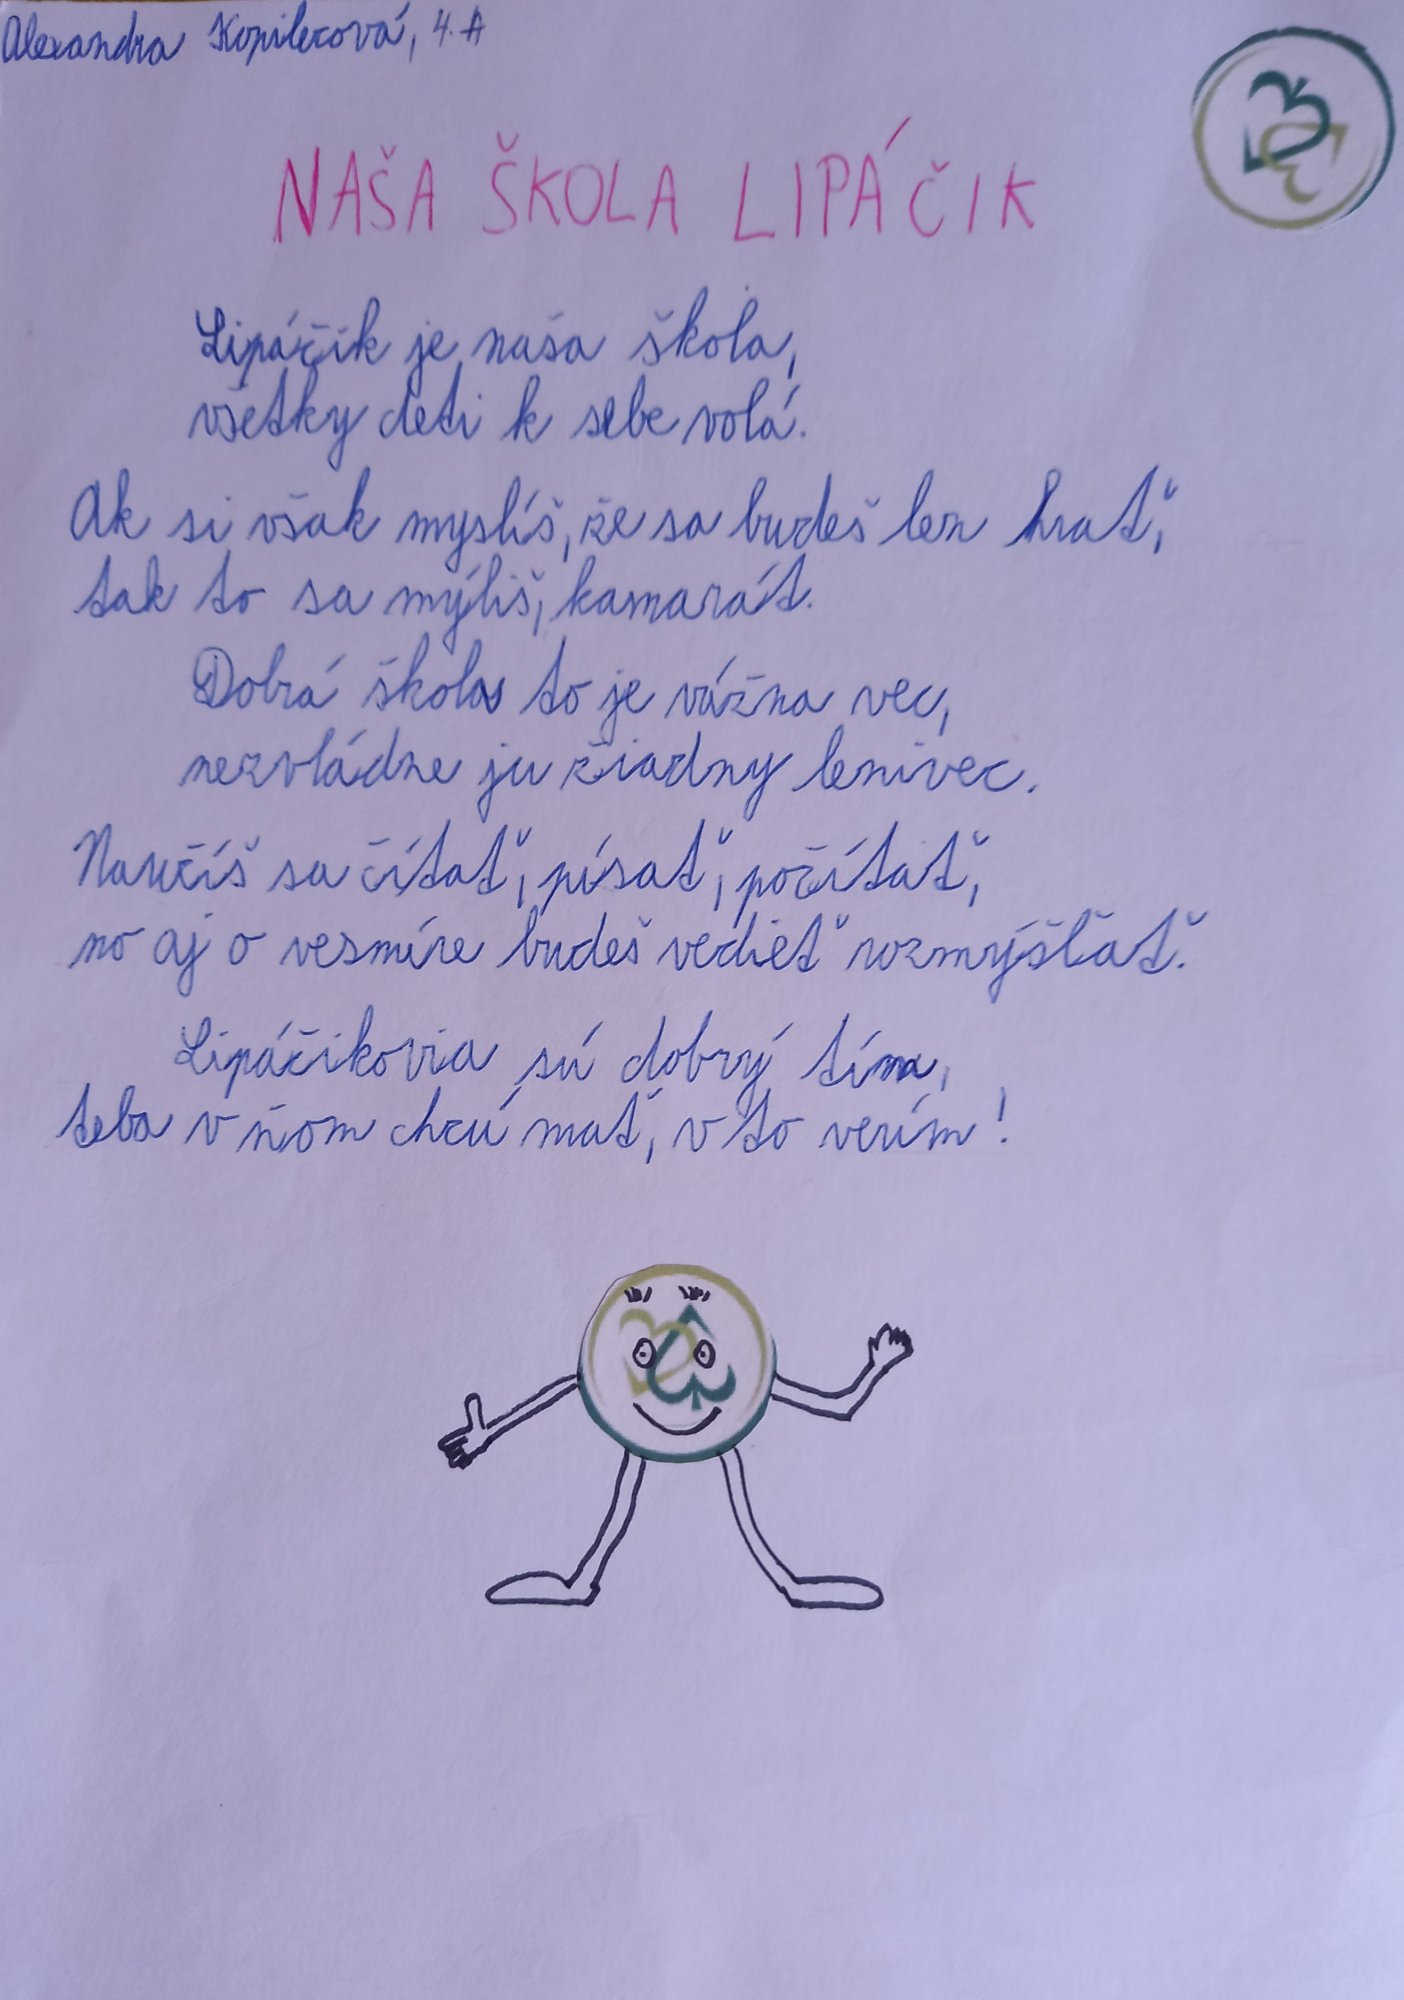 Alexandra Kopilecová, 4.A
NAŠA ŠKOLA LIPÁČIK
Lipáčik je naša škola,
všetky deti k sebe volá.
Ak si však myslíš, že sa budeš len hrať,
tak to sa mýliš, kamarát.
Dobrá škola to je vážna vec,
nezvládne ju žiadny lenivec.
Naučíš sa čítať, písať, počítať,
no aj o vesmíre budeš vedieť rozmýšľať.
Lipáčikovia sú dobrý tím,
teba v ňom chcú mať, v to verím!